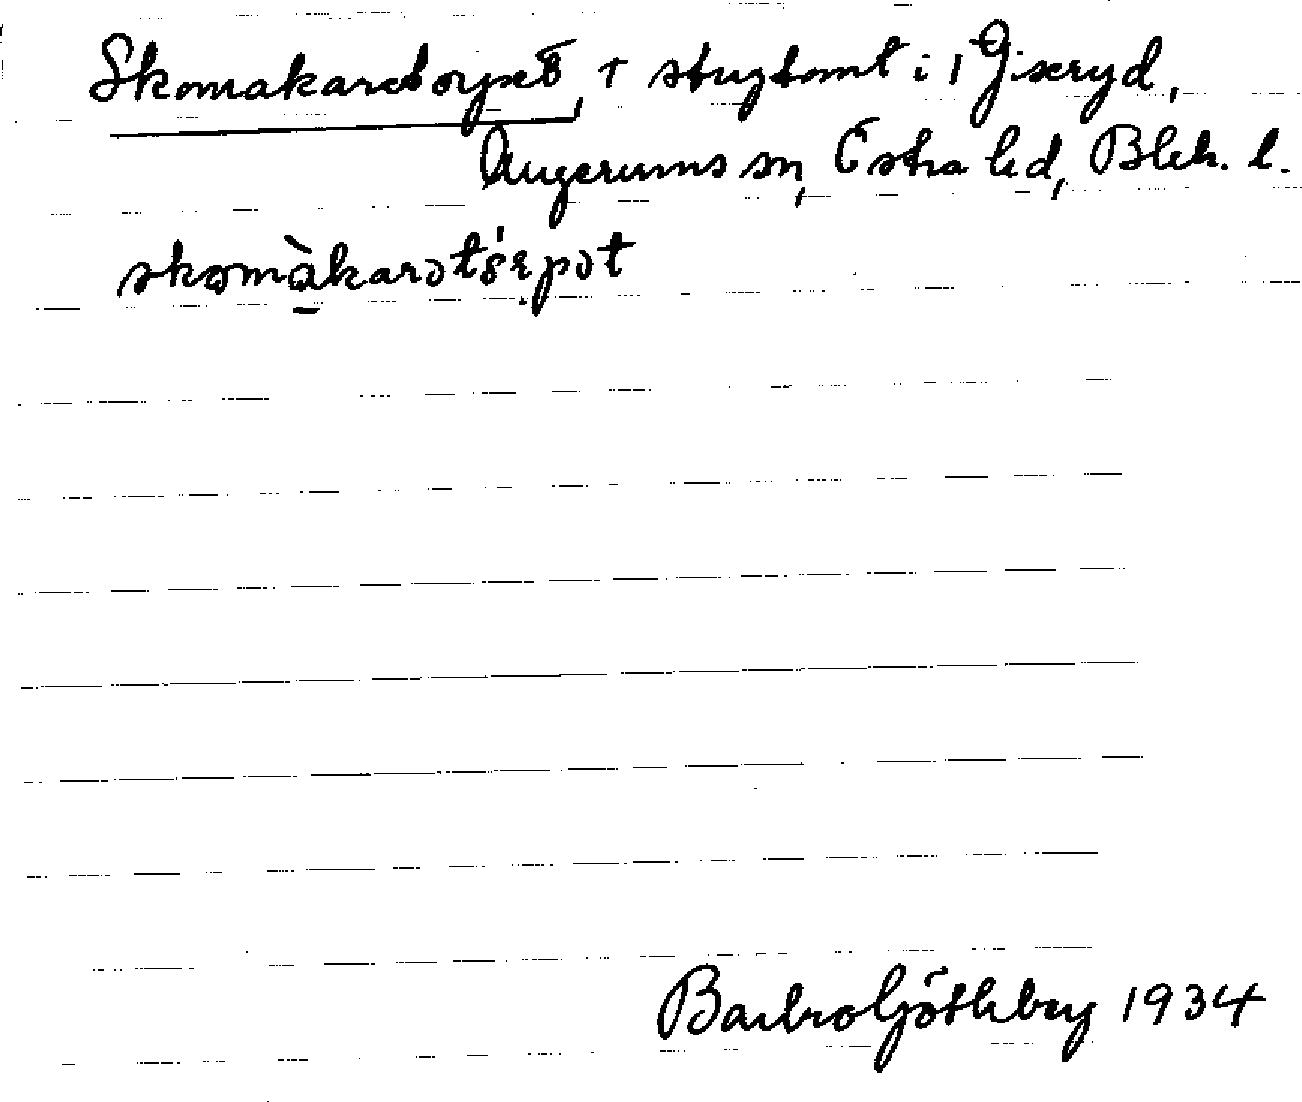 Skomakaretorpet, † stugtomt i 1 Giseryd,
Augerums sn, Östra hd, Blek. l.
skomàkarətórpət
Barbro Göthberg 1934